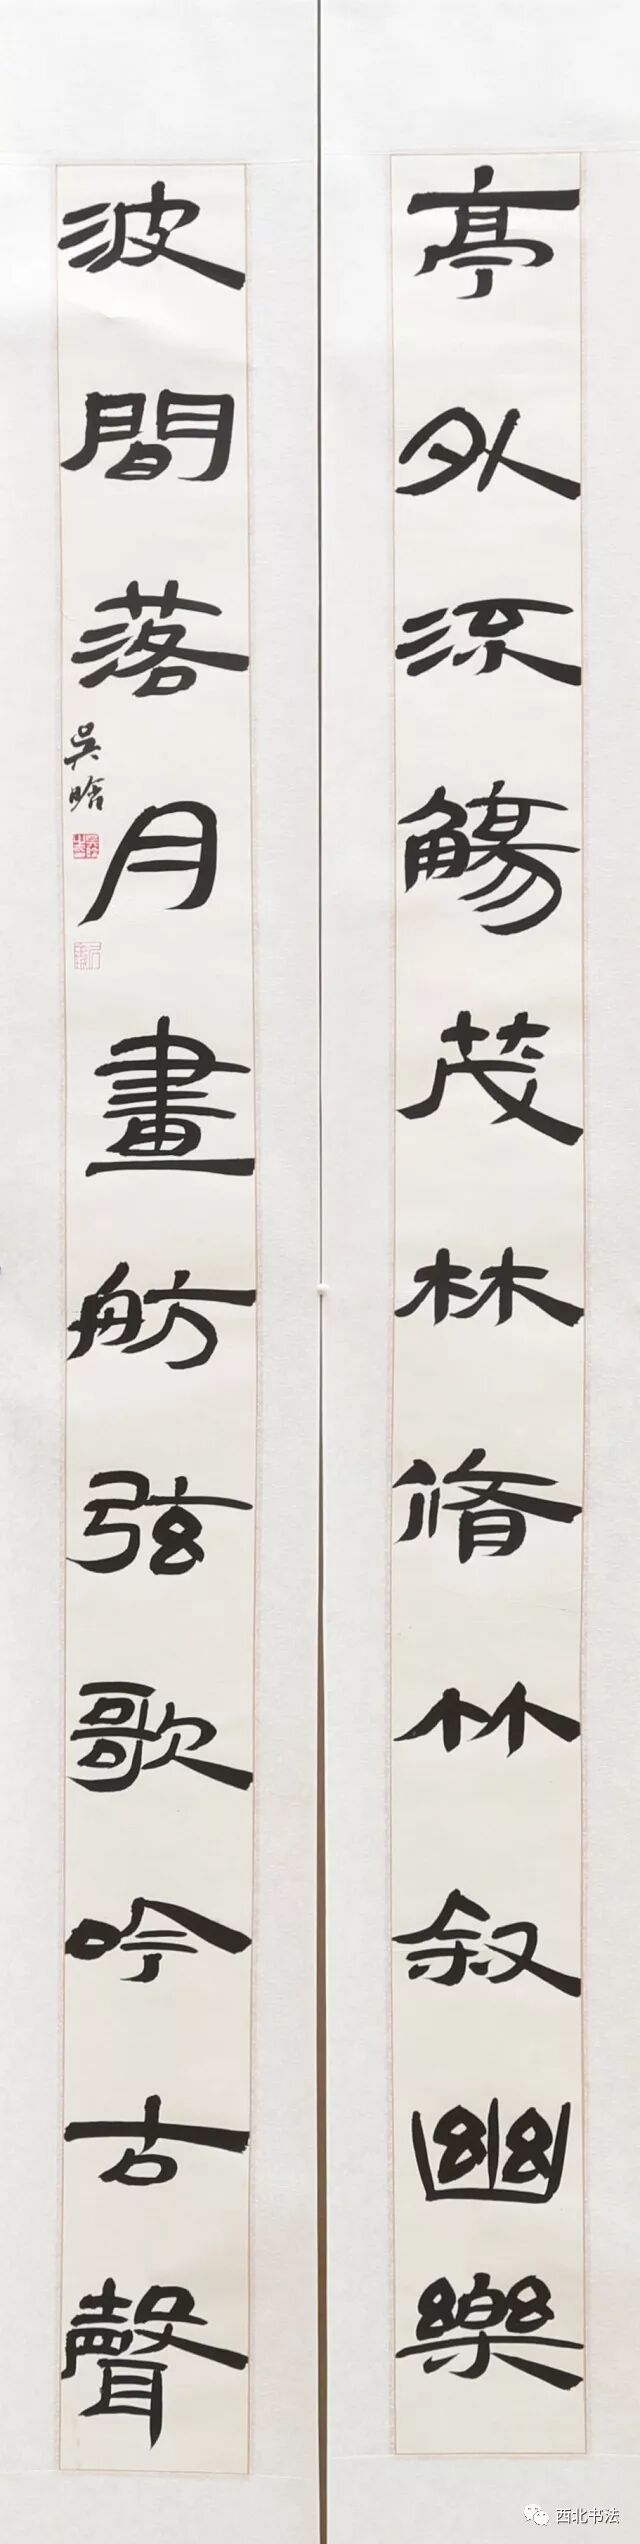 亭外流觴茂林脩竹叙幽樂
波間落月畫舫弦歌吟古聲
吳晗
西北书法